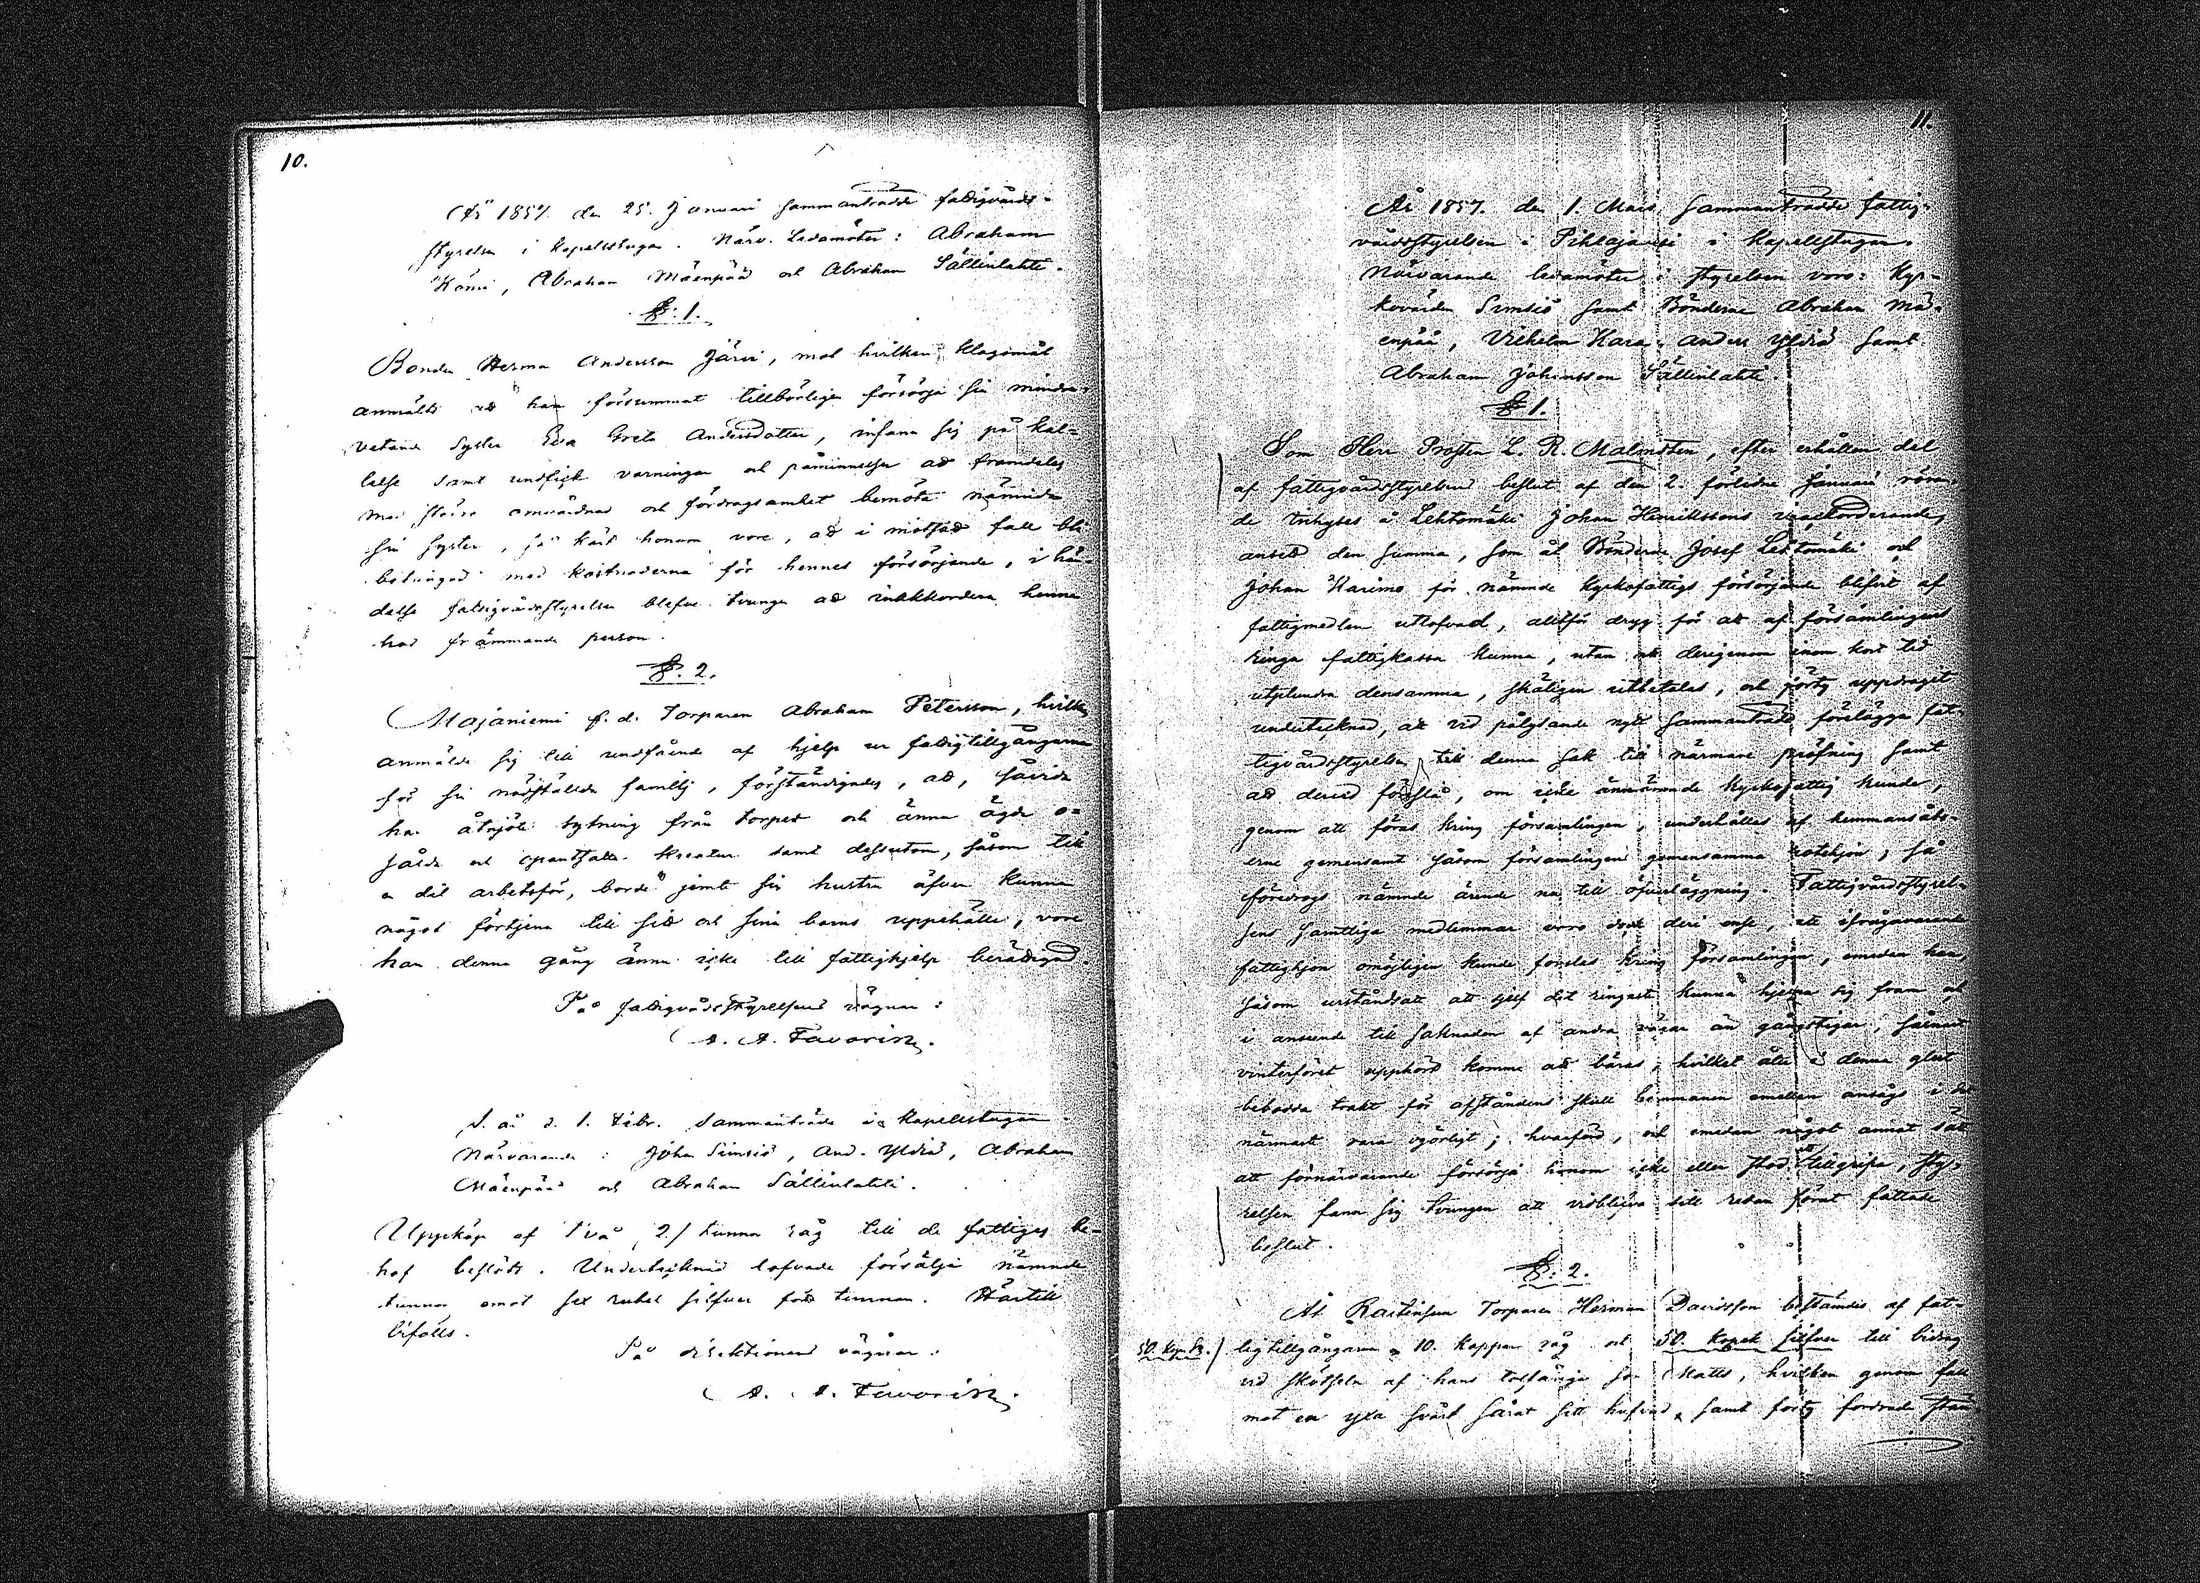 10.
År 1857. den 25. Januari sammanträdde fattigvårds-
styrelsen i Kapellstugan. Närv. Ledamöter: Abraham
Kömi, Abraham Mäenpää och Abraham Sällinlahti.
§. 1.
Bonden Herman Andersson Järvi, mot hvilken klagomål
anmälts att han försummat tillbörligen försörja sin mindre
vetande Syster Eva Greta Andersdotter, infann sig på kal-
lelse samt undfick varningar och påminnelse att framdeles
med större omvårdnad och fördragsamhet bemöta nämnda
sin syster, så kärt honom vore, att i motsatt fall bli
betungad med kostnaderna för hennes försörjande, i hän-
delse fattigvårdsstyrelsen blefve tvungen att inakkordera henne
hos främmande person.
§. 2.
Majaniemi f. d. Torparen Abraham Petersson, hvilken
anmälde sig till undfående af hjelp ur fattigtillgångarna
för sin nödställda familj, förständigades, att, såvida
han åtnjöte sytning från torpet och ännu ägde o-
sålda och opantsatta kreatur samt dessutom, såsom till
en del arbetsför, borde jemte sin hustru äfven kunna
något förtjena till sitt och sina barns uppehälle, vore
han denna gång ännu icke till fattighjelp berättigad.
På fattigvårdsstyrelsens vägnar:
A. A. Favorin.
S. å. d. 1. Febr. Sammanträde i Kapellstugan.
Närvarande: Johan Simsiö, And. Yldiä, Abraham
Mäenpää och Abraham Sällinlahti.
Uppköp af Två 2/ tunnor råg till de fattiges be-
hof beslöts. Undertecknad lofvade försälja nämnde
tunnor emot sex rubel silfver för tunnan. Härtill
bifölls.
På direktionens vägnar:
A. A. Favorin.
11.
År 1857. den 1. Mars, Sammanträdde fattig-
vårdsstyrelsen i Pihlajavesi i Kapellstugan.
Närvarande ledamöter i styrelsen voro: Kyr-
kovärden Simsiö samt Bönderne Abraham Mä-
enpää, Vilhelm Hara, Anders Yldiä samt
Abraham Johansson Sällinlahti.
§ 1.
Som Herr Prosten L. R. Malmsten, efter erhållen del
af fattigvårdsstyrelsens beslut af den 2. förlidne Januari röran-
de Inhyses å Lehtomäki Johan Henrikssons inackorderande,
ansett den summa, som åt Bönderne Josef Lehtomäki och
Johan Harimo för nämnde kyrkofattigs försörjande blifvit af
fattigmedlen utlofvad, alltför dryg för att af församlingens
ringa fattigkassa kunna, utan att derigenom inom kort tid
utplundra densamma, skäligen utbetalas, och förty uppdragit
undertecknad, att vid pålysande nytt Sammanträde förelägga fat-
tigvårdsstyrelsen denna sak till närmare pröfning samt
att dervid föreslå, om icke nämnde kyrkofattig kunde,
genom att föras kring församlingen, underhållas af hemmansåbo-
erne gemensamt såsom församlingens gemensamma rotehjon; så
föredrogs nämnde ärende nu till öfverläggning. Fattigvårdsstyrel-
sens samtliga medlemmar voro dock deri ense, att ifrågavarande
fattighjon omöjligen kunde forslas kring församlingen, emedan han,
såsom urståndsatt att sjelf det ringaste kunna hjelpa sig fram och
i anseende till saknaden af andra vägar än gångstigar, såsnart
vinterföret upphörd komme att bäras, hvilket åter i denna glest
bebodda trakt för afståndens skull hemmanen emellan ansågs i det
närmast vara ogörligt; hvarföre, och emedan något annat sätt
att förnärvarande försörja honom icke eller stod att tillgripa, sty-
relsen fann sig tvungen att vidblifva sitt redan förut fattade
beslut.
§: 2.
Åt Raitinsuu Torparen Herman Davidsson bestämdes af fat-
50. kop. S./ tigtillgångarne 10. kappar råg och 50. kopek silfver till bidrag
vid skötseln af hans son Matts, hvilken genom fall
mot en yxa svårt sårat sitt hufvud, samt förty fordrade stän-